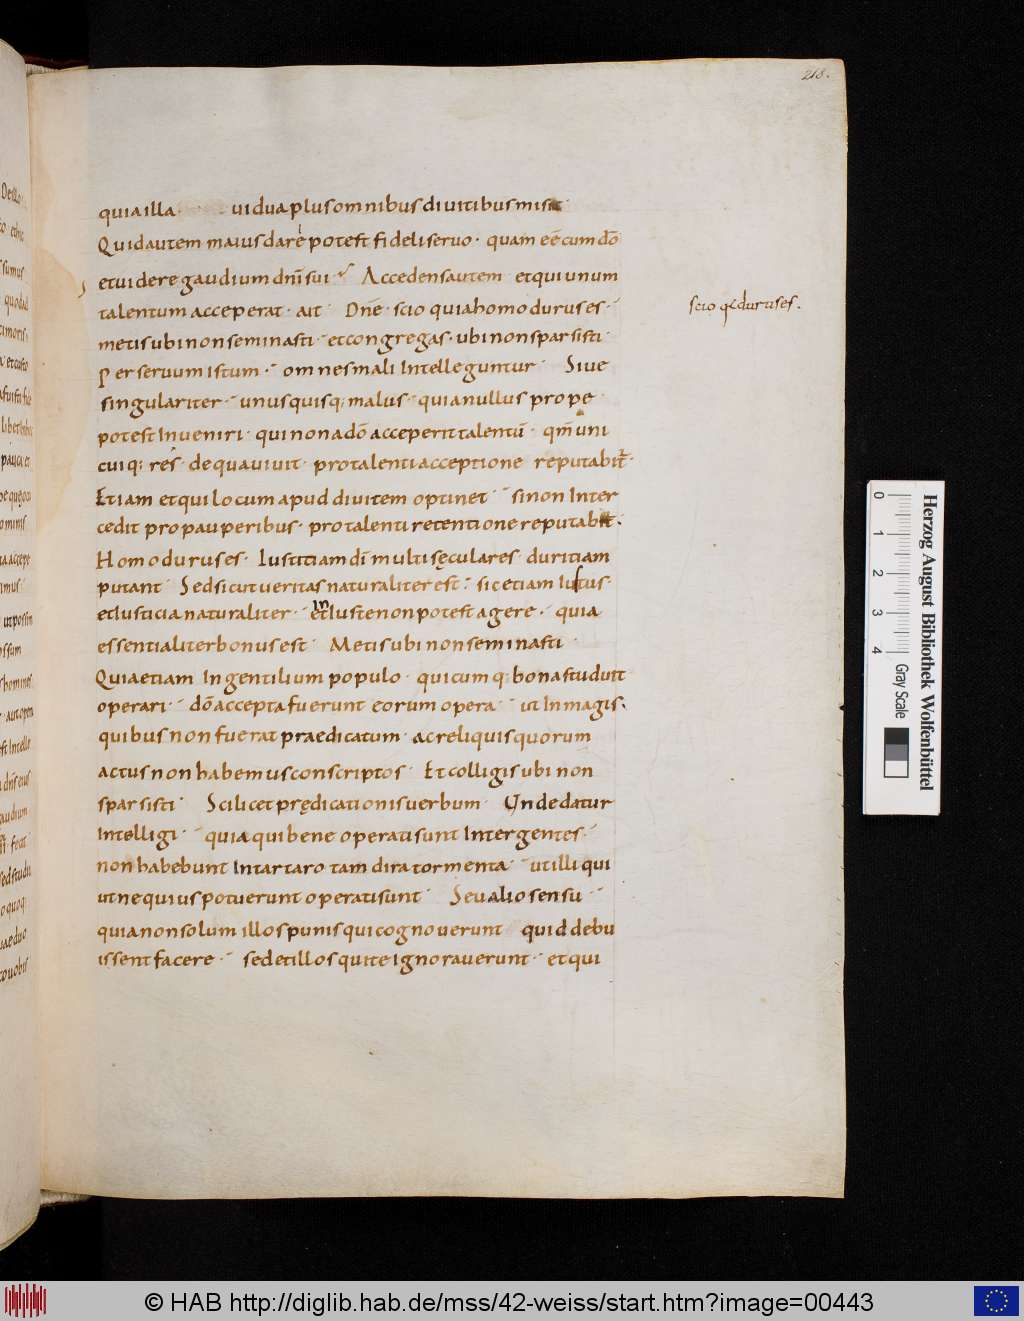 218.
quia illa · uidua plus omnibus diuitibus misit ·
Quid autem maius dare potest fideli seruo · quam eē cum dō
et uidere gaudium dnī sui · Accedens autem et qui unum
talentum acceperat · ait Dnē · scio quia homo durus es ·
scio qđ durus es .
metis ubi non seminasti · et congregas · ubi non sparsisti ·
Per seruum istum · omnes mali Intelleguntur · Siue
singulariter · unus quisq; malus · quia nullus prope
potest Inueniri · qui non a dō acceperit talentū · qm̄ uni
cuiq; res · de qua uiuit · pro talenti acceptione reputabit̄ ·
Etiam et qui locum apud diuitem optinet · si non Inter
cedit pro pauperibus · pro talenti retentione reputabit̄ ·
Homo durus es · Iustitiam dī multi sęculares · duritiam
putant · Sed sicut ueritas naturaliter est · sic etiam Iustus
et Iusticia naturaliter · et In Iuste non potest agere · quia
essentialiter bonus est · Metis ubi non seminasti ·
Quia etiam In gentilium populo · quicumq; bona studuit
operari · dō accepta fuerunt eorum opera · ut In magis ·
quibus non fuerat praedicatum · ac reliquis quorum
actus non habemus conscriptos · Et colligis ubi non
sparsisti · Scilicet prędicationis uerbum · Unde datur
Intelligi · quia qui bene operati sunt Inter gentes ·
non habebunt In tartaro tam dira tormenta · ut illi qui
ut nequius potuerunt operati sunt · Seu alio sensu ·
quia non solum illos punis qui cognouerunt quid debu
issent facere · sed et illos qui te ignorauerunt · et qui
Herzog August Bibliothek Wolfenbüttel
0 1 2 3 4 Gray Scale
© HAB http://diglib.hab.de/mss/42-weiss/start.htm?image=00443